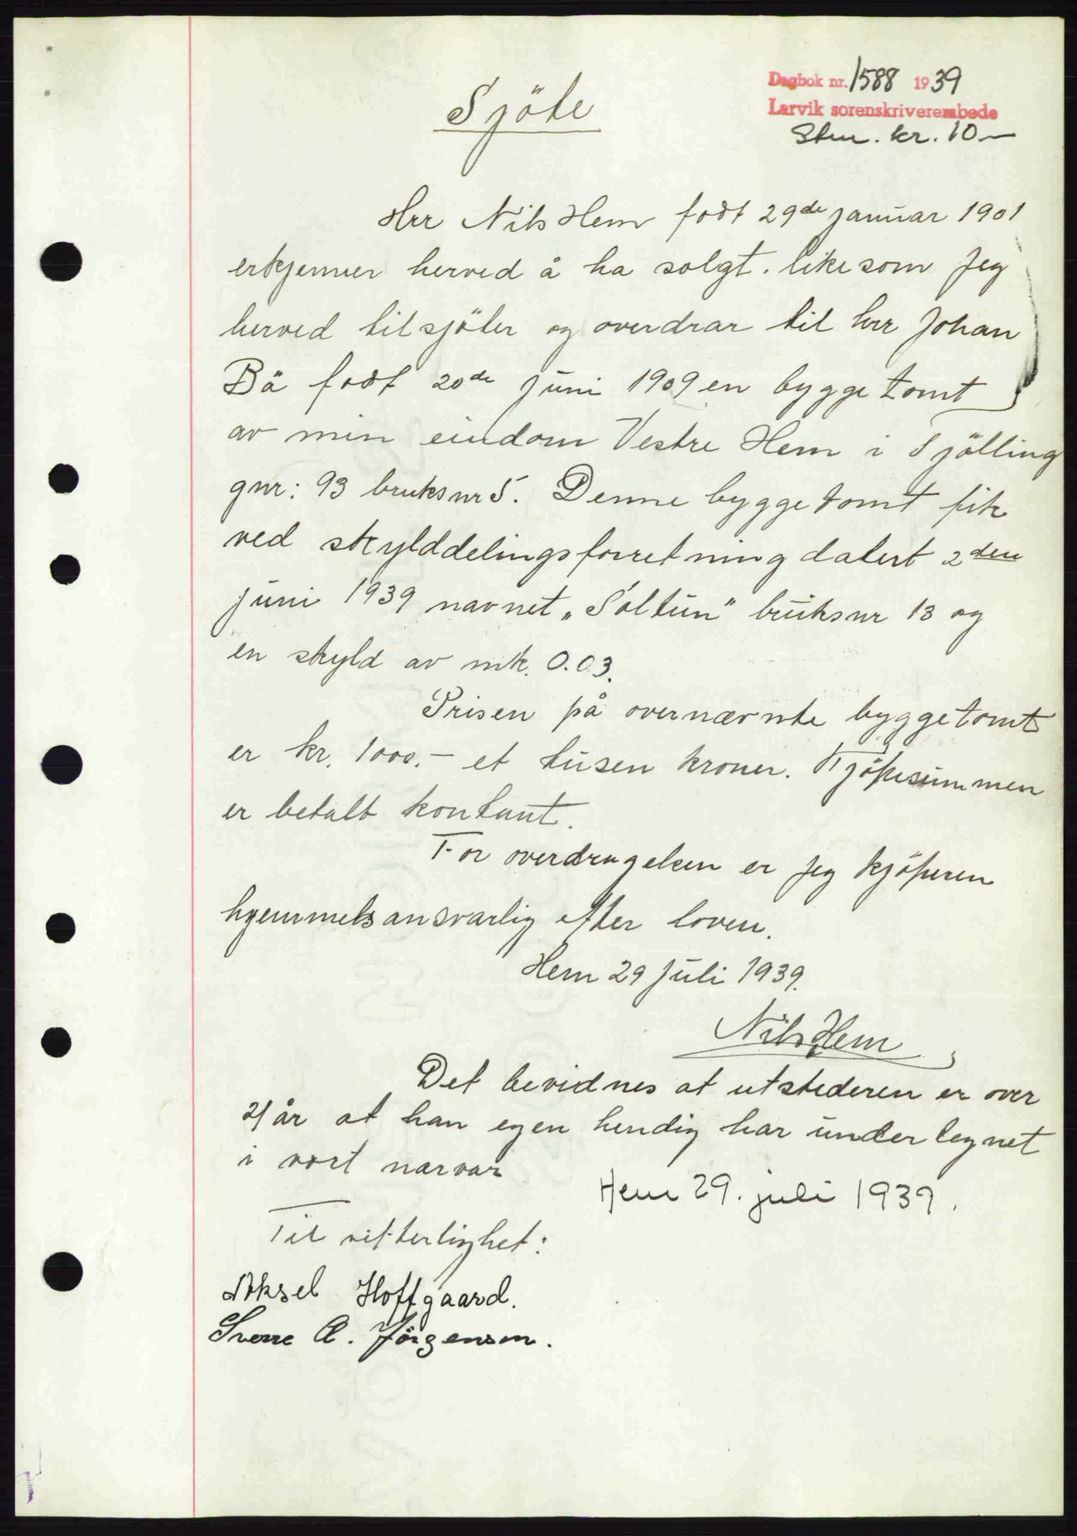 Dagbok nr. 1588 1939
Larvik sorenskriverembede
Stm. kr. 10—
Sjöte
Herr Nils Hem födt 29de januar 1901
erkjenner herved å ha solgt. likesom Jeg
herved tilsjöter og overdrar til herr Johan
Bö födt 20de juni 1909 en bygge tomt
av min eiendom Vestre Hem i Tjölling
gnr: 93 bruksnr 5. Denne bygge tomt fik
ved skylddelingsforretning datert 2den
juni 1939 navnet „Soltun" bruksnr 13 og
en skyld av mk. 0.03.
Prisen på overnævnte bygge tomt
er kr. 1000.— et tusen kroner. Kjöpesummen
er betalt kontant.
For overdragelsen er jeg kjöperen
hjemmelsansvarlig efter loven.
Hem 29 Juli 1939.
Nils Hem
Det bevidnes at utstederen er over
21 år at han egen hendig har undertegnet
i vort narvar
Hem 29. juli 1939.
Til vitterlighet:
Aksel Hoffgaard.
Sverre A. Jörgensen.